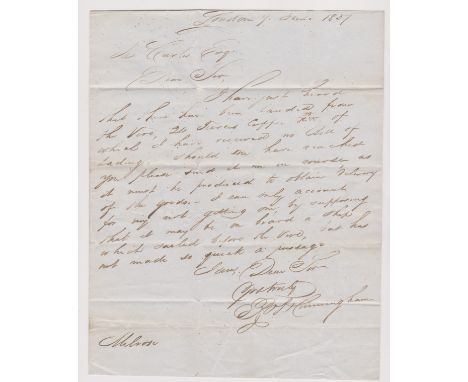 London 9 June 1857
Esq
Dear Sir
I have just heard
that there has been landed from
the Vivo, 20 Tierces Coffee of
which I have received no bill of
lading. Should one have reached
you please send it me in course as
it must be produced to obtain delivery
of the goods. I can only account
for my not getting one by supposing
that it may be on board a ship
which sailed before the Vivo, but has
not made so quick a passage
I am, Dear Sir
Yrs truly
Cunningham
Melrose